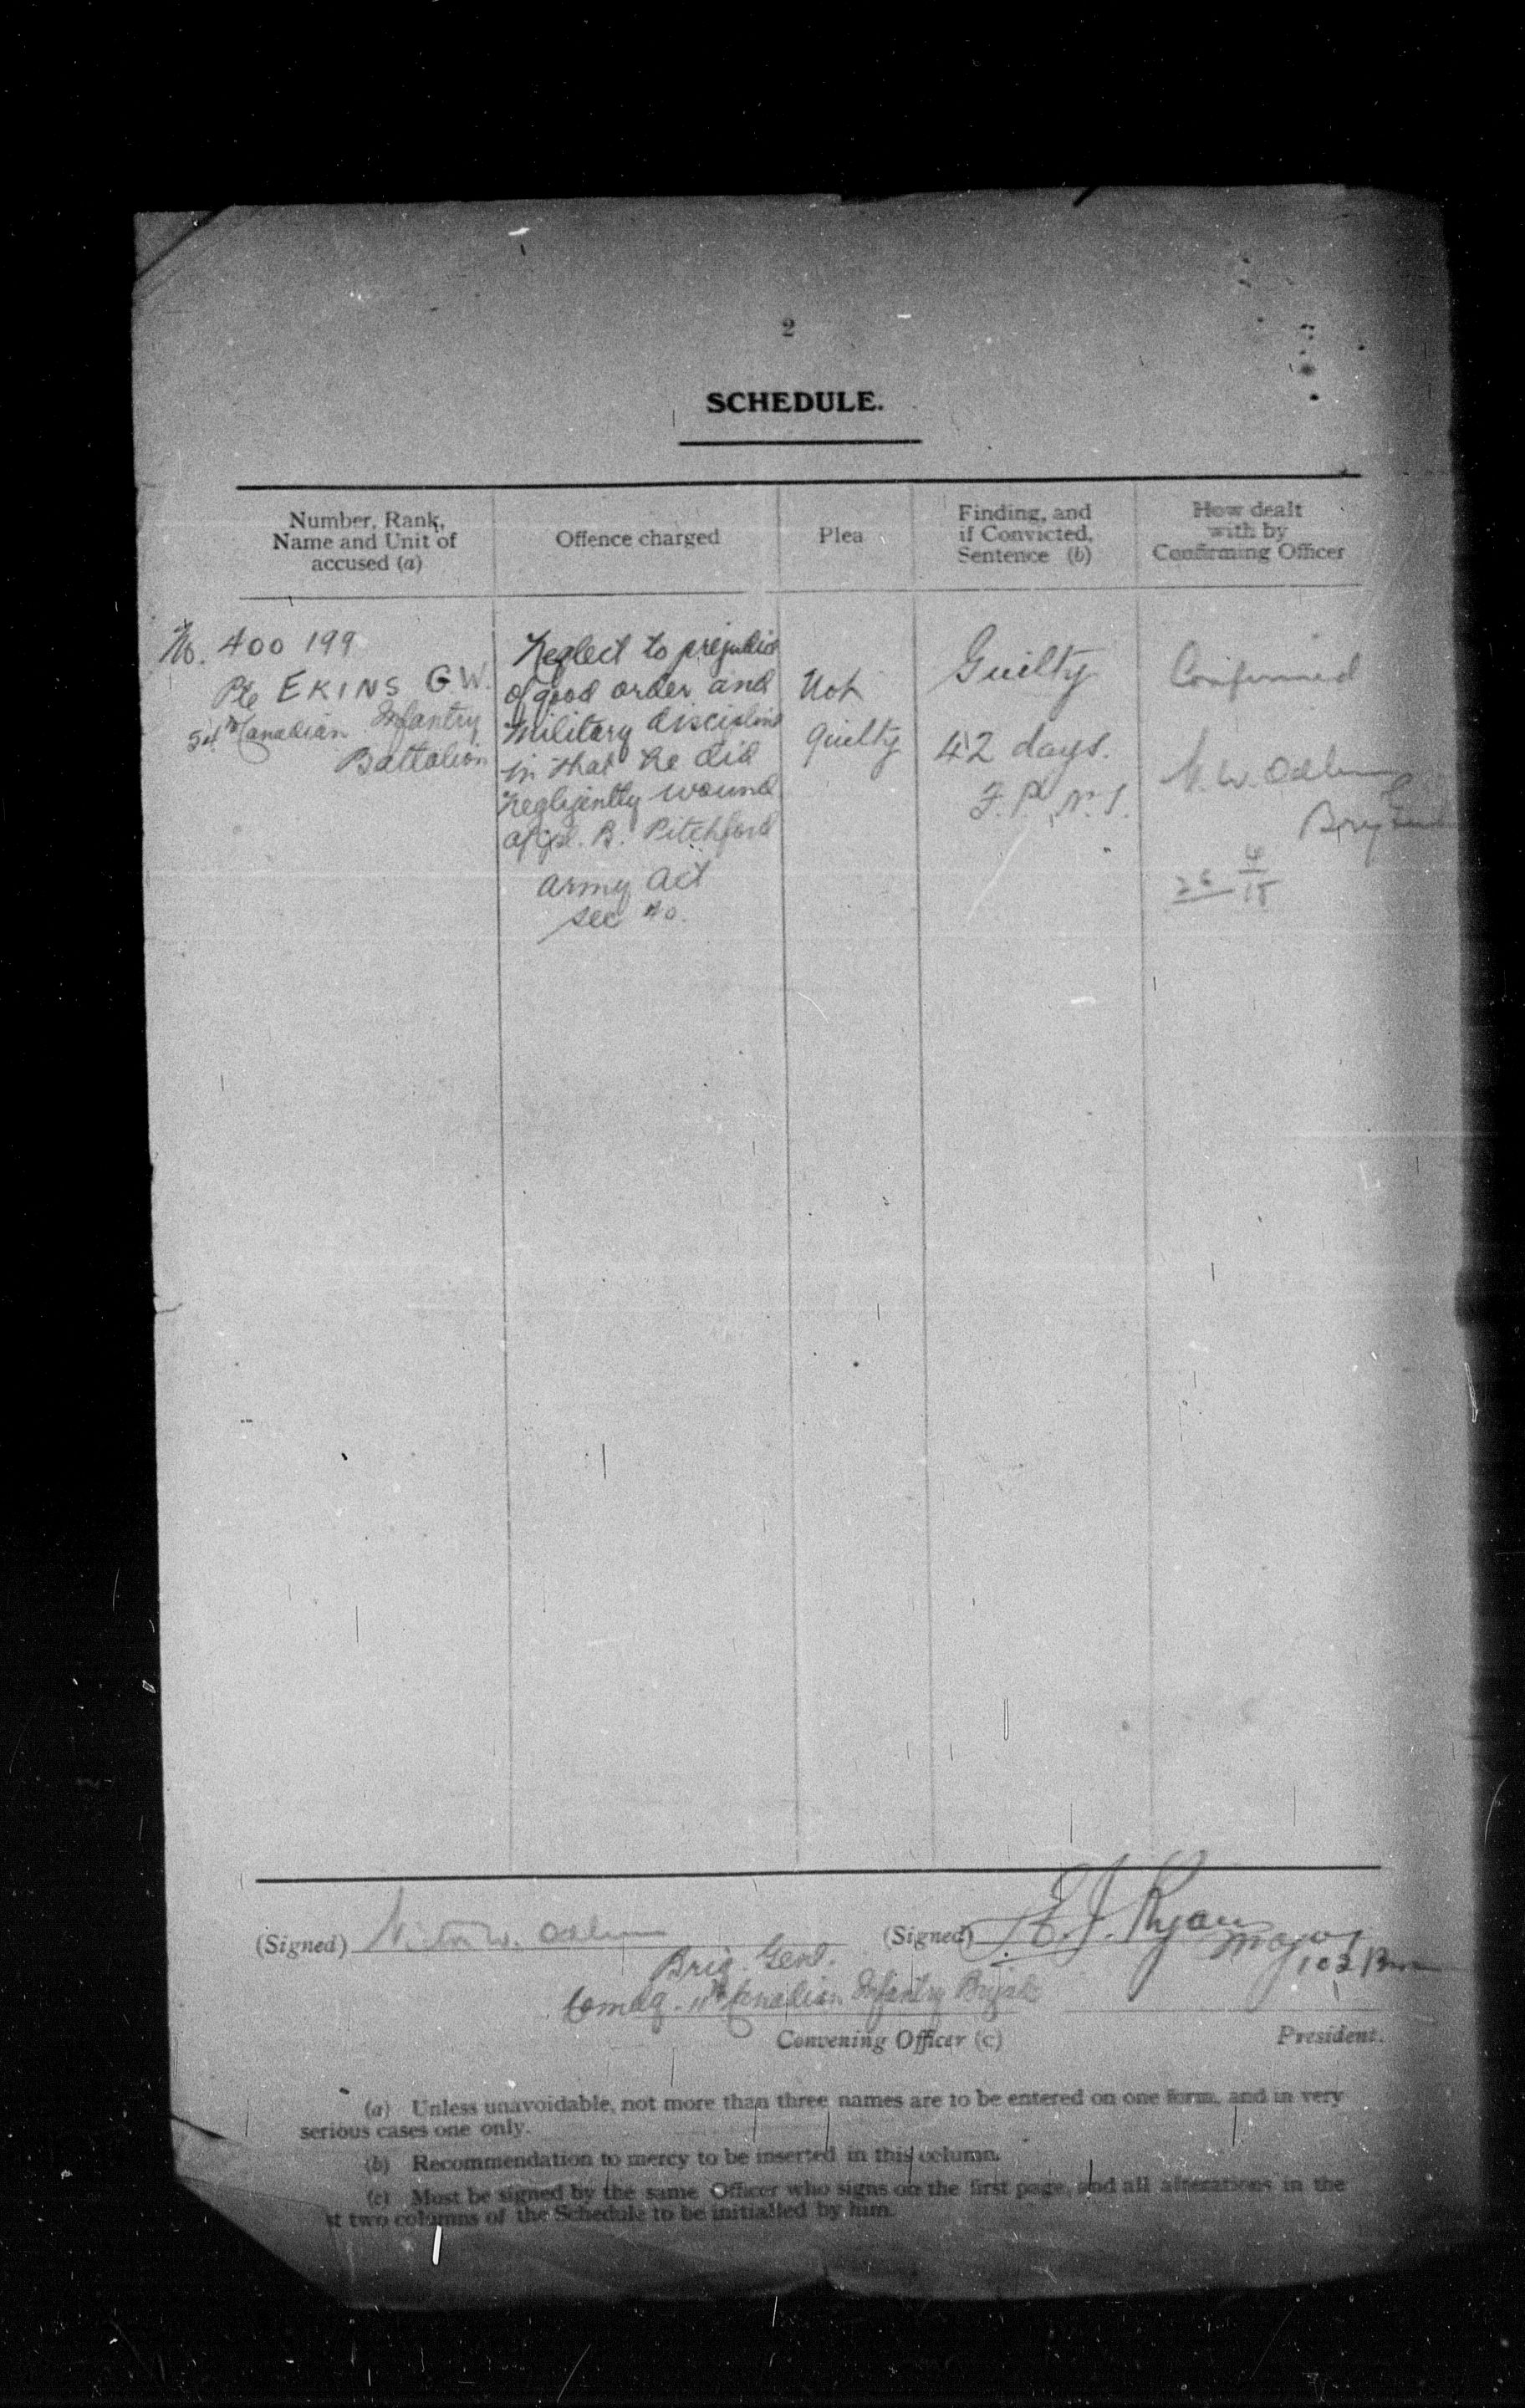 2
SCHEDULE.
Number, Rank,
Name and Unit of
accused (a)
Offence charged
Plea
Finding, and
if Convicted,
Sentence (b)
How dealt
with by
Confirming Officer
No. 400 199
Pte EKINS G.W.
54th Canadian Infantry
Battalion
Neglect to prejudice
of good order and
military discipline
in that he did
negligently wound
a/cpl. B. Pitchford
Army Act
Sec 40.
Not
guilty
Guilty
42 days.
F.P. No 1.
Confirmed
V.W. Odlum
26 4/18
(Signed) Victor W. Odlum
Brig. Genl.
Comdg. 11th Canadian Infantry Brigade
Convening Officer (c)
(Signed) E.J. Ryan
Major
102 Bn
President.
(a) Unless unavoidable, not more than three names are to be entered on one form, and in very
serious cases one only.
(b) Recommendation to mercy to be inserted in this column.
(c) Must be signed by the same Officer who signs on the first page, and all alterations in the
st two columns of the Schedule to be initialled by him.